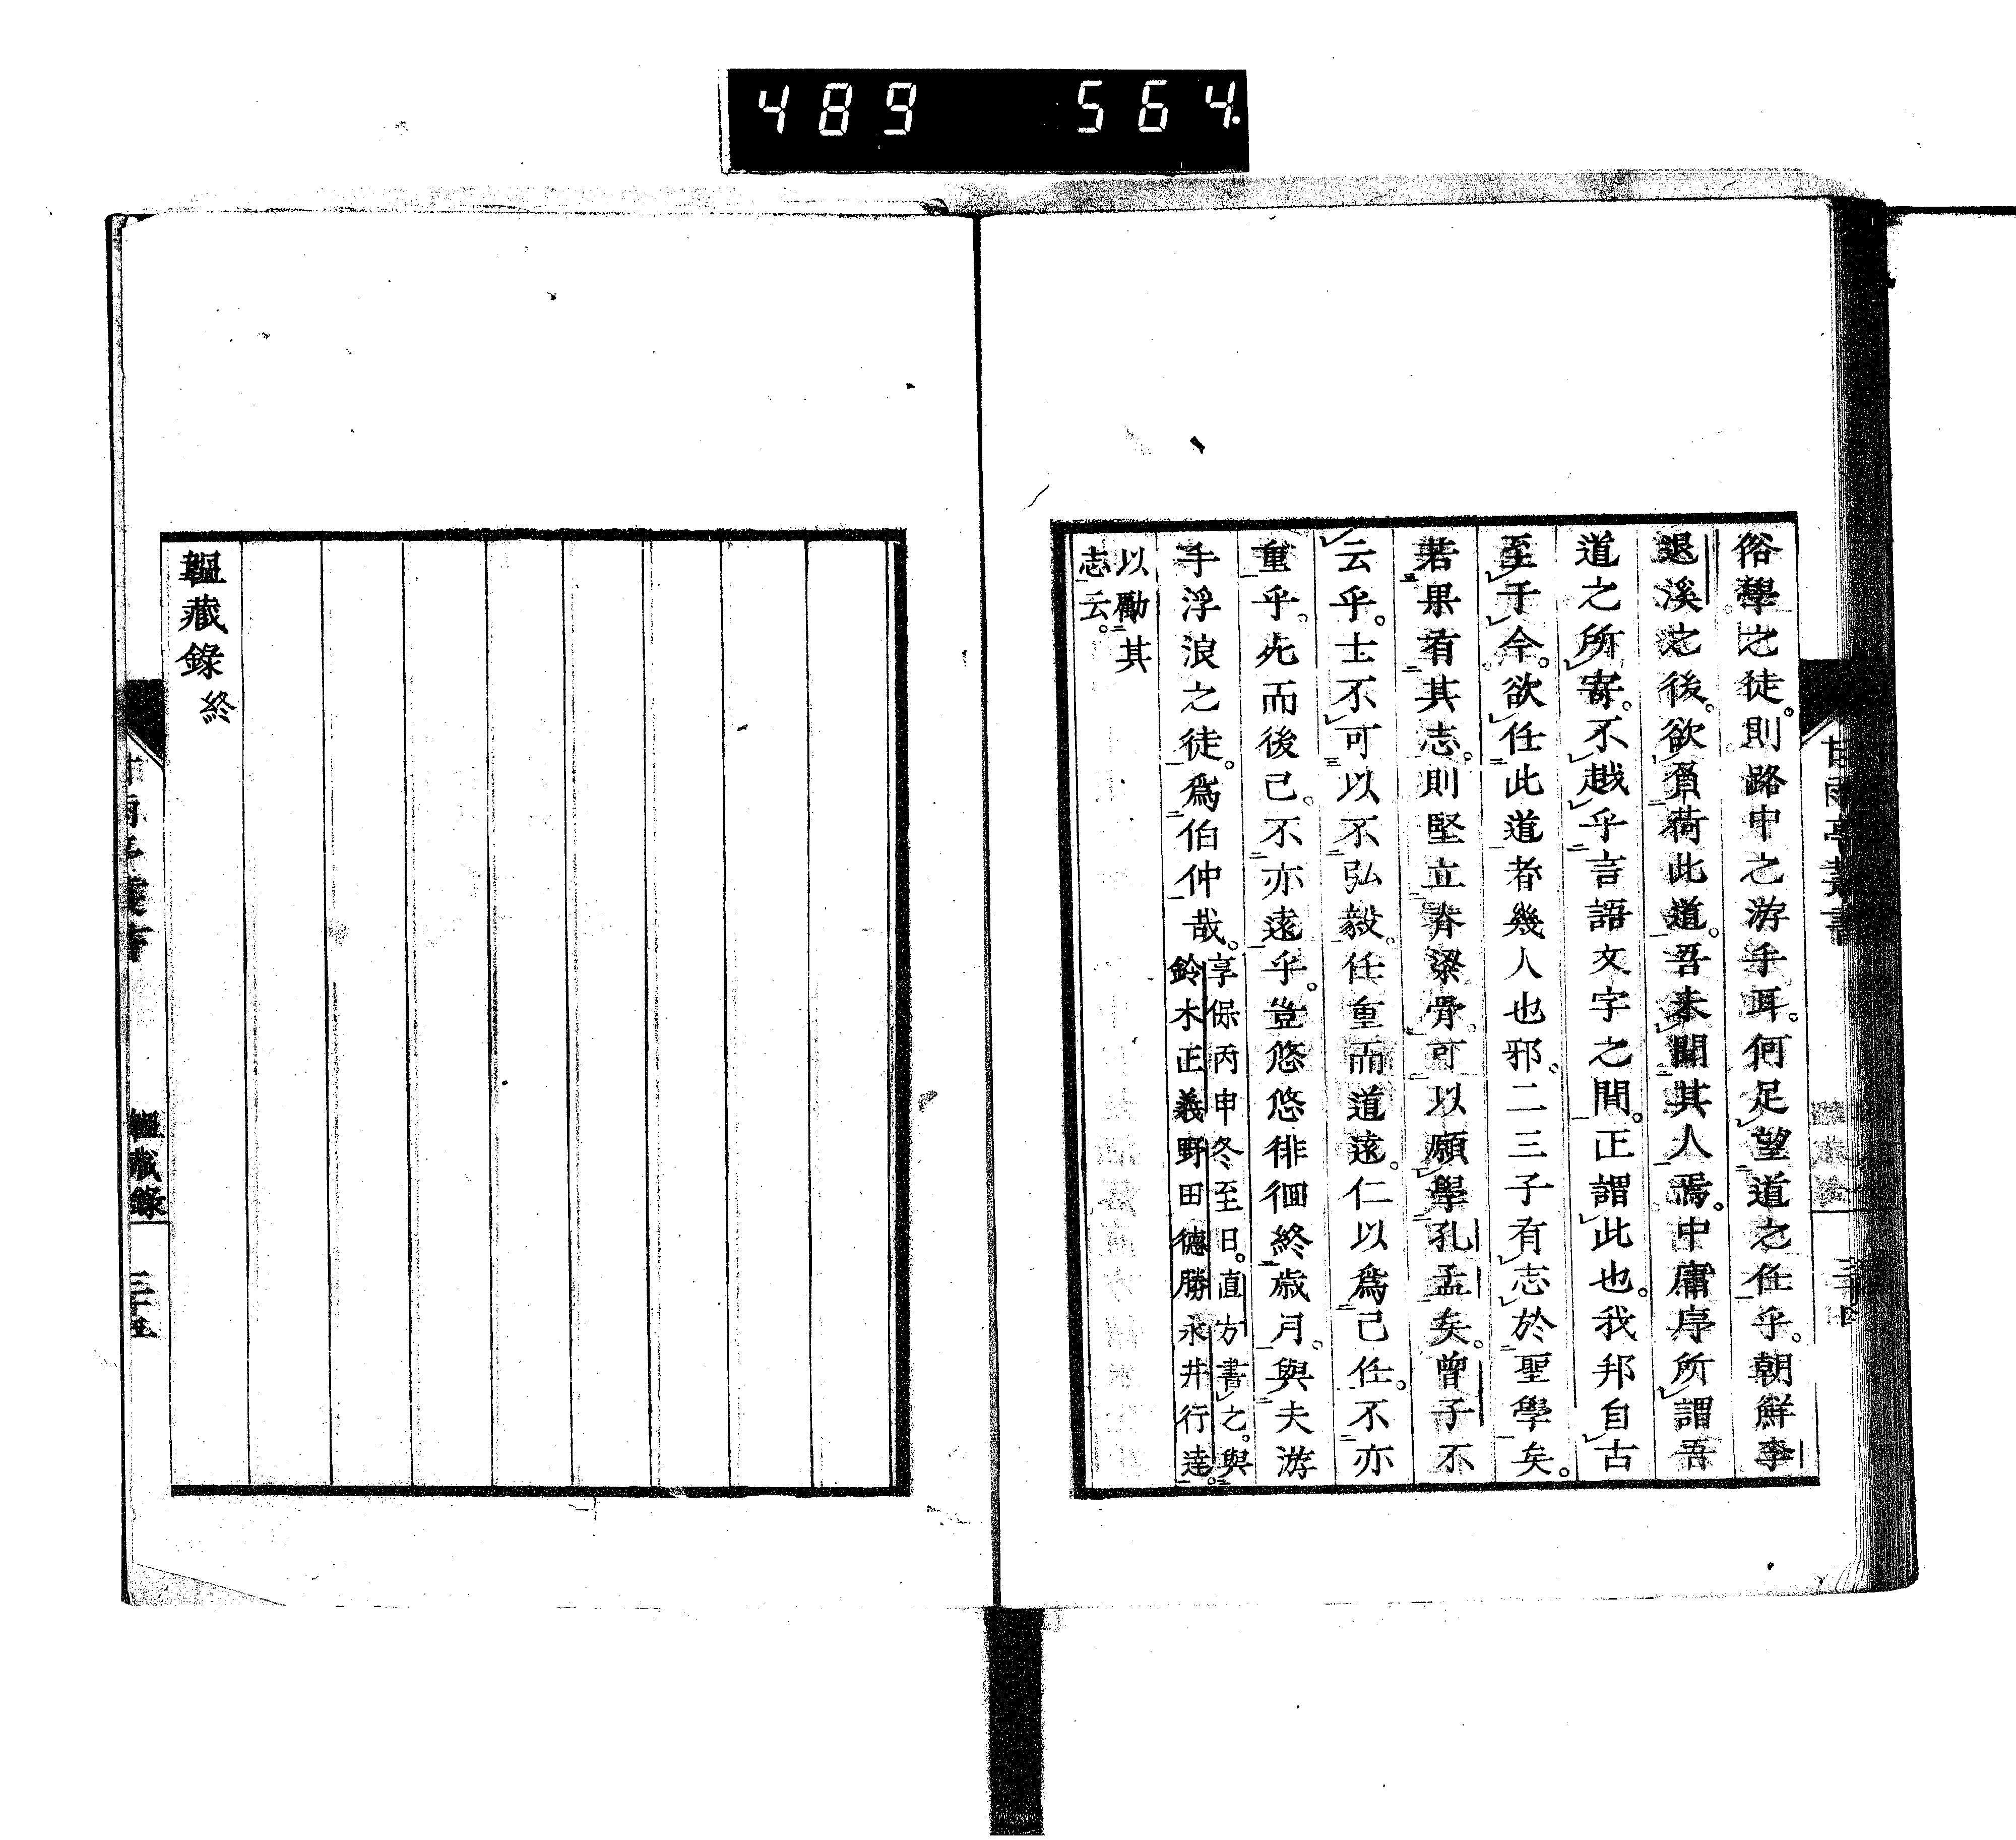 489 564.
俗學之徒。則路中之游手耳。何足望道之任乎。朝鮮李
退溪之後。欲負荷此道。吾未聞其人焉。中庸序所謂吾
道之所寄。不越乎言語文字之間。正謂此也。我邦自古
至于今。欲任此道者幾人也邪。二三子有志於聖學矣。
若果有其志。則堅立脊梁骨。可以願學孔孟矣。曾子不
云乎。士不可以不弘毅。任重而道遠。仁以爲己任。不亦
重乎。死而後已。不亦遠乎。豈悠悠徘徊終歲月。與夫游
手浮浪之徒。爲伯仲哉。
享保丙申冬至日。直方書之。與
鈴木正義野田德勝永井行達。
以勵其
志云。
甘雨亭叢書
三十四
韞藏錄終
韞藏錄
三十五